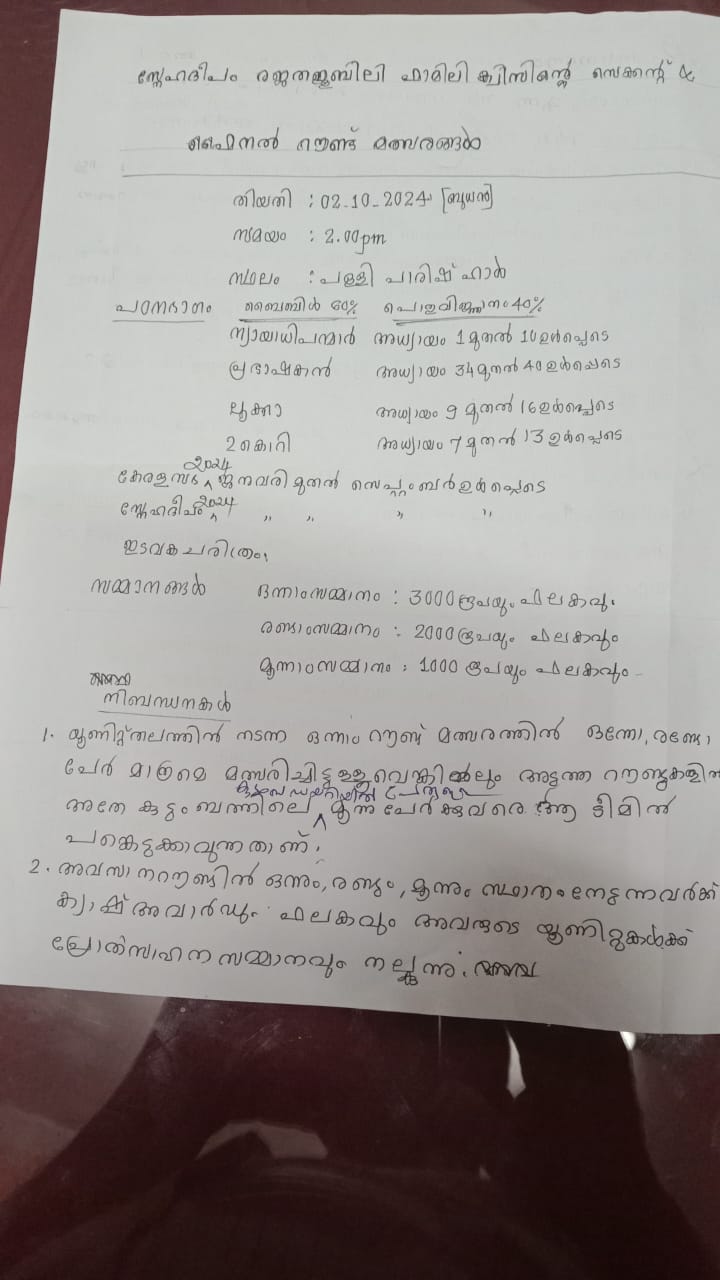 സ്നേഹദീപം രജതജൂബിലി ഫാമിലി ക്വിസിന്റെ സെക്കന്റ് &
ഫൈനൽ റൗണ്ട് മത്സരങ്ങൾ
തിയതി : 02-10-2024 [ബുധൻ]
സമയം : 2.00pm
സ്ഥലം : പള്ളി പാരിഷ് ഹാൾ
പഠനഭാഗം ബൈബിൾ 60% പൊതുവിജ്ഞാനം 40%
ന്യായാധിപന്മാർ അധ്യായം 1 മുതൽ 10 ഉൾപ്പെടെ
പ്രഭാഷകൻ അധ്യായം 34 മുതൽ 40 ഉൾപ്പെടെ
ലൂക്കാ അധ്യായം 9 മുതൽ 16 ഉൾപ്പെടെ
2 കൊറി അധ്യായം 7 മുതൽ 13 ഉൾപ്പെടെ
കേരളസഭ 2024 ജനവരി മുതൽ സെപ്റ്റംബർ ഉൾപ്പെടെ
സ്നേഹദീപം 2024 " " " "
ഇടവക ചരിത്രം.
സമ്മാനങ്ങൾ ഒന്നാംസമ്മാനം : 3000 രൂപയും ഫലകവും.
രണ്ടാംസമ്മാനം : 2000 രൂപയും ഫലകവും
മൂന്നാംസമ്മാനം : 1000 രൂപയും ഫലകവും
നിബന്ധനകൾ
1. യൂണിറ്റ്തലത്തിൽ നടന്ന ഒന്നാം റൗണ്ട് മത്സരത്തിൽ ഒന്നോ, രണ്ടോ
പേർ മാത്രമെ മത്സരിച്ചിട്ടുള്ളുവെങ്കിൽലും അടുത്ത റൗണ്ടുകളിൽ
അതേ കുടുംബത്തിലെ മൂന്ന് പേർക്കുവരെ ആ ടീമിൽ
പങ്കെടുക്കാവുന്നതാണ്.
2. അവസാനറൗണ്ടിൽ ഒന്നും, രണ്ടും, മൂന്നും സ്ഥാനം നേടുന്നവർക്ക്
ക്യാഷ് അവാർഡും ഫലകവും അവരുടെ യൂണിറ്റുകൾക്ക്
പ്രോത്സാഹന സമ്മാനവും നല്കുന്നു.